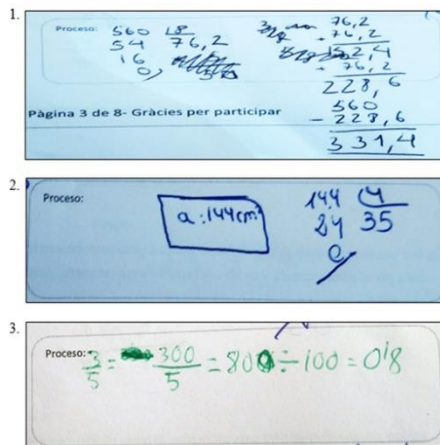 1.
Proceso:
560 L8
54 76,2
16
0
76,2
+ 76,2
152,4
+ 76,2
228,6
560
- 228,6
331,4
Pàgina 3 de 8- Gràcies per participar
2.
Proceso:
a:144cm²
144 4
24 35
0
3.
Proceso:
3/5 = 300/5 = 800 ÷ 100 = 0'8